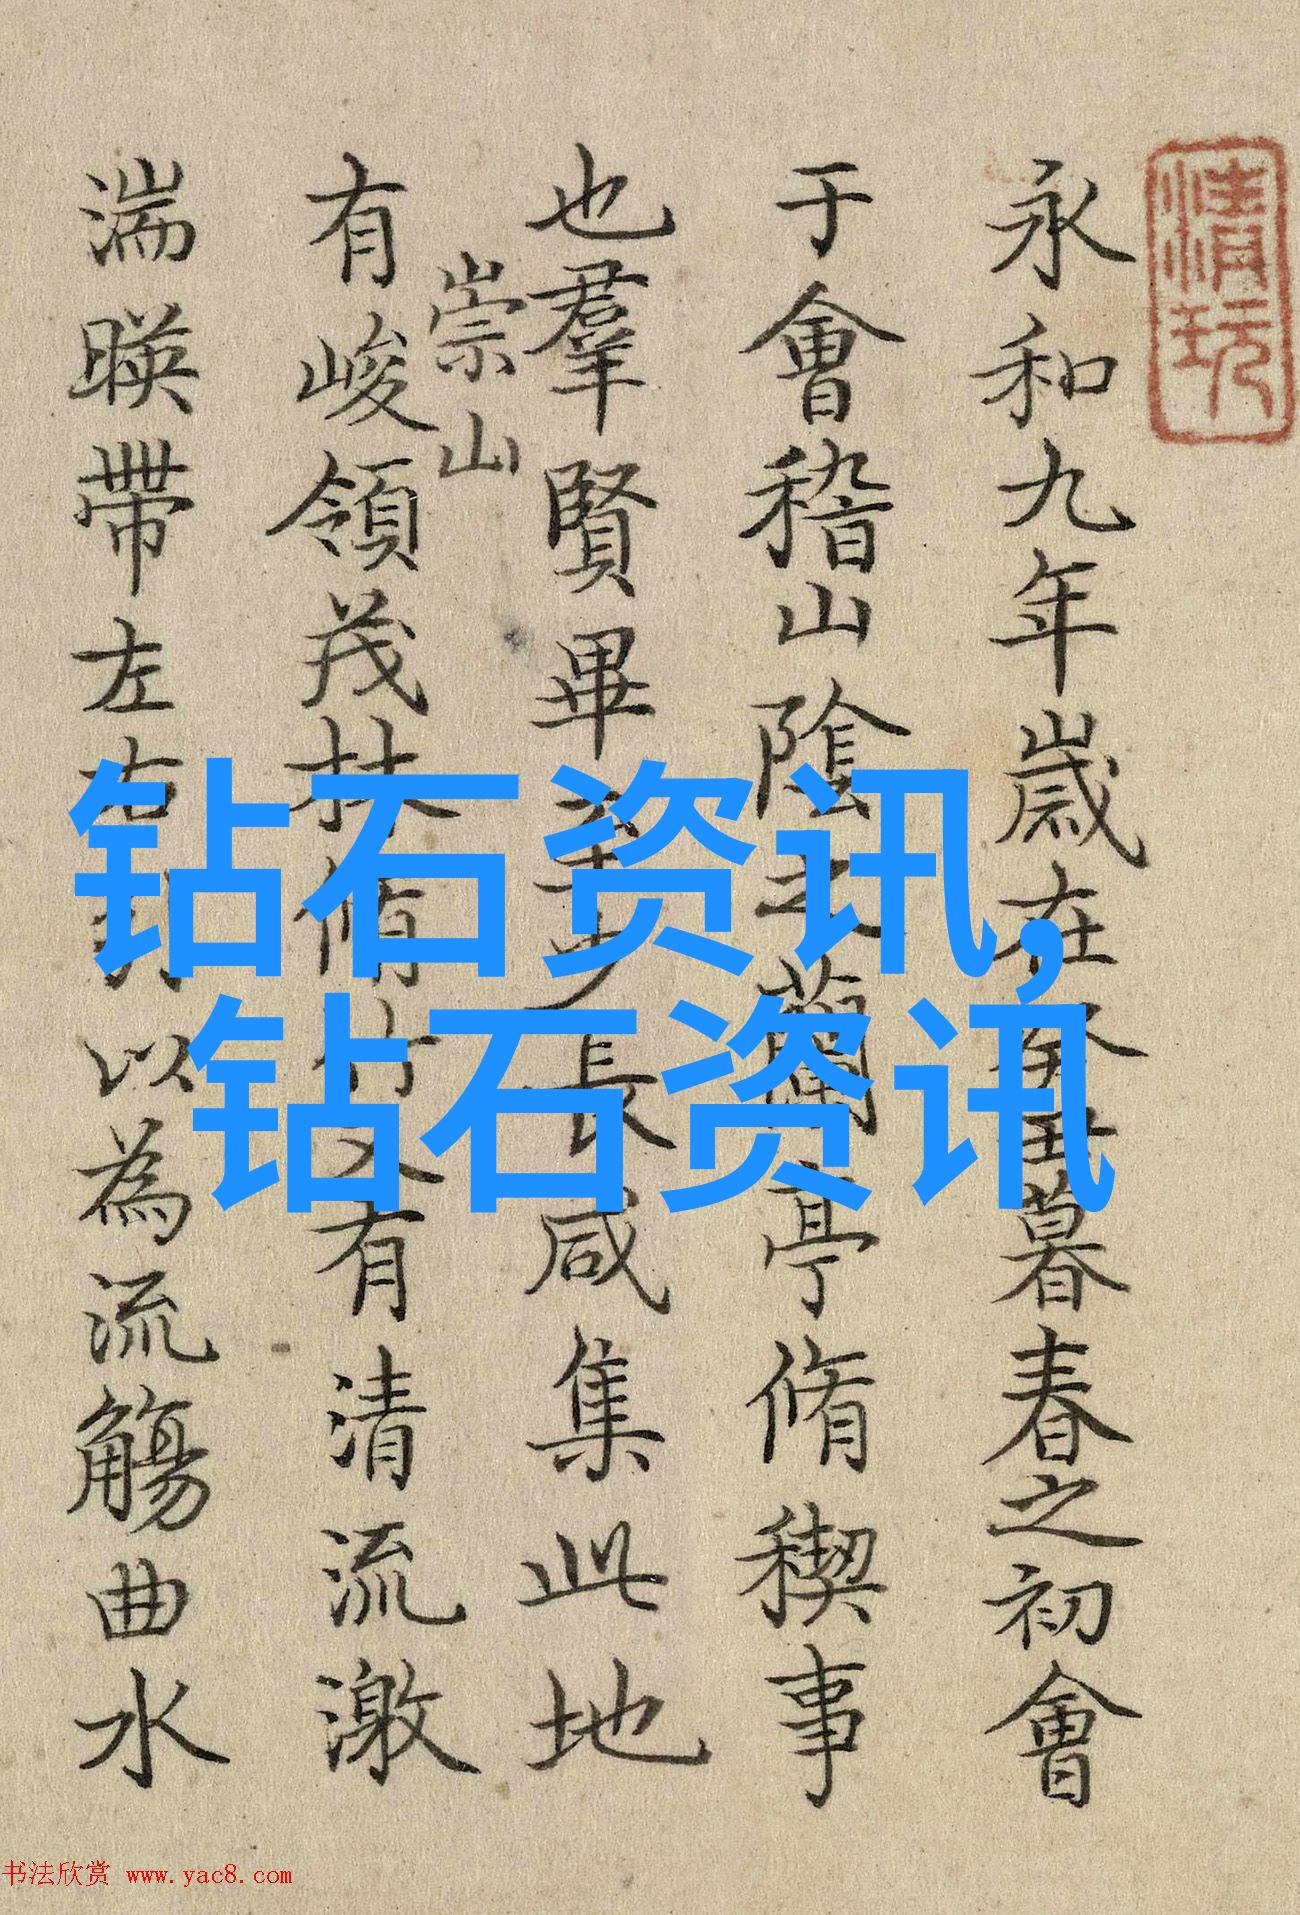 清玩
永和九年歲在癸丑暮春之初會
于會稽山陰之蘭亭脩稧事
也羣賢畢至少長咸集此地
崇山
有峻領茂林脩竹又有清流激
湍暎帶左右引以為流觴曲水
钻石资讯,
钻石资讯
书法欣赏 www.yac8.com